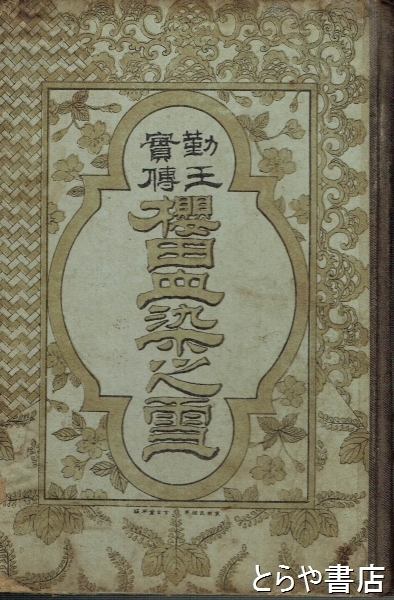 勤王
實傳
櫻田血染之雪
とらや書店